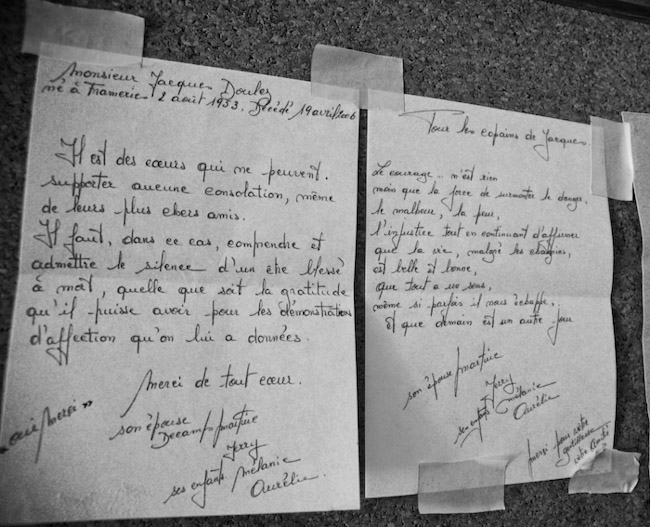 Monsieur Jacques Doulez
né à Framerie 2 août 1933. Décédé 19 avril 2006
Il est des cœurs qui ne peuvent.
supporter aucune consolation, même
de leurs plus chers amis.
Il faut, dans ce cas, comprendre et
admettre le silence d'un être blessé
à mort, quelle que soit la gratitude
qu'il puisse avoir pour les démonstrations
d'affection qu'on lui a données.
Merci de tout cœur.
merci »
son épouse
martine
Jerry
ses enfants. Mélanie
Aurélie.
Pour les copains de Jacques.
Le courage... n'est rien
mais que la force de surmonter le danger,
le malheur, la peur,
l'injustice tout en continuant d'affirmer
que la vie, malgré les chagrins,
est belle et bonne,
que tout a un sens,
même si parfois il nous échappe,
Et que demain est un autre jour
son épouse martine
Jerry
ses enfants mélanie
Aurélie
merci pour votre
gentillesse
votre